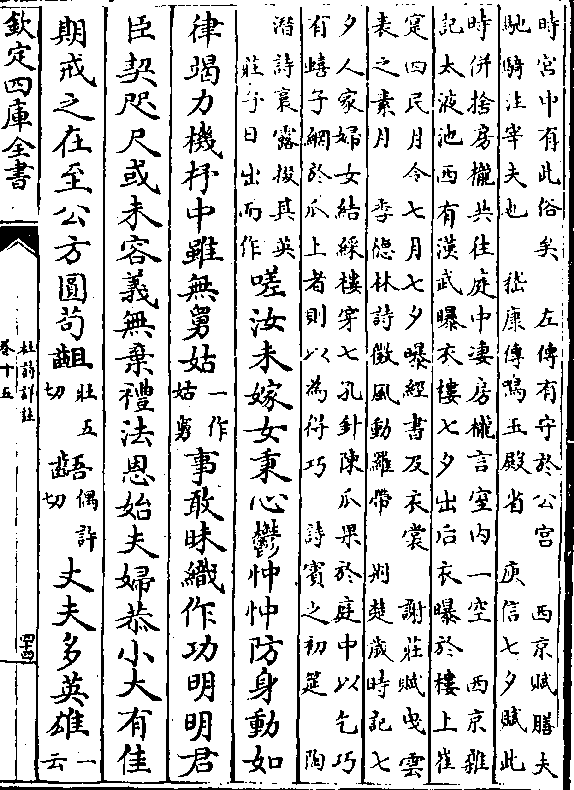 時宮中有此俗矣　左傳有守於公宮　西京賦膳夫
馳騎注宰夫也　嵇康傳鳴玉殿省　庾信七夕賦此
時併捨房櫳共往庭中淒房櫳言室內一空　西京雜
記太液池西有漢武曝衣樓七夕出后衣曝於樓上崔
寔四民月令七月七夕曝經書及衣裳　謝莊賦曳雲
表之素月　李德林詩微風動羅帶　荆楚歲時記七
夕人家婦女結綵樓穿七孔針陳瓜果於庭中以乞巧
有蟢子網於瓜上者則以為得巧　詩賓之初筵　陶
潜詩裛露掇其英
莊子日出而作
嗟汝未嫁女秉心鬱忡忡防身動如
律竭力機杼中雖無舅姑一作姑舅事敢昧織作功明明君
臣契咫尺或未容義無棄禮法恩始夫婦恭小大有佳
期戒之在至公方圓苟齟壯五切齬偶許切丈夫多英雄一云
欽定四庫全書
杜詩詳註
卷十五
四十四